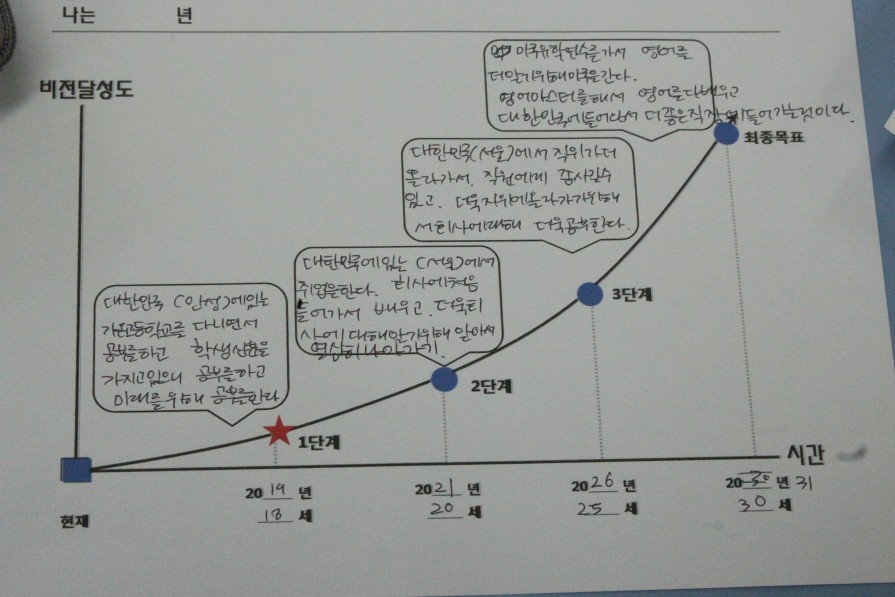 나는 년
비전달성도
미국유학연수를가서 영어를
더알기위해미국을간다.
영어마스터를해서 영어를다배우고
대한민국에들어와서 더좋은직장에들어가는것이다.
최종목표
대한민국(서울)에서 직위가더
올라가서, 직원에게 줄수
있고. 더욱지위에올라가기위해
서회사에대해 더욱공부한다.
3단계
대한민국에있는 (서울)에서
취업을한다. 회사에처음
들어가서 배우고. 더욱회
사에 대해알기위해 알아서
열심히나아가기.
2단계
대한민국 (안성)에있는
가온고등학교를 다니면서
공부를하고 학생신분을
가지고있으니 공부를하고
미래를위해 공부를한다
1단계
시간
현재
2019 년
18 세
2021 년
20 세
2026 년
25 세
2030 년 31
30 세